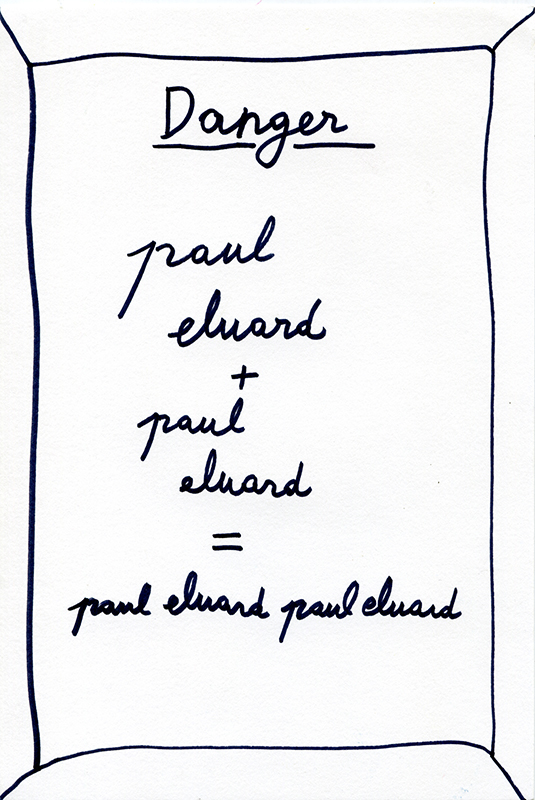 Danger
paul
eluard
+
paul
eluard
=
paul eluard paul eluard